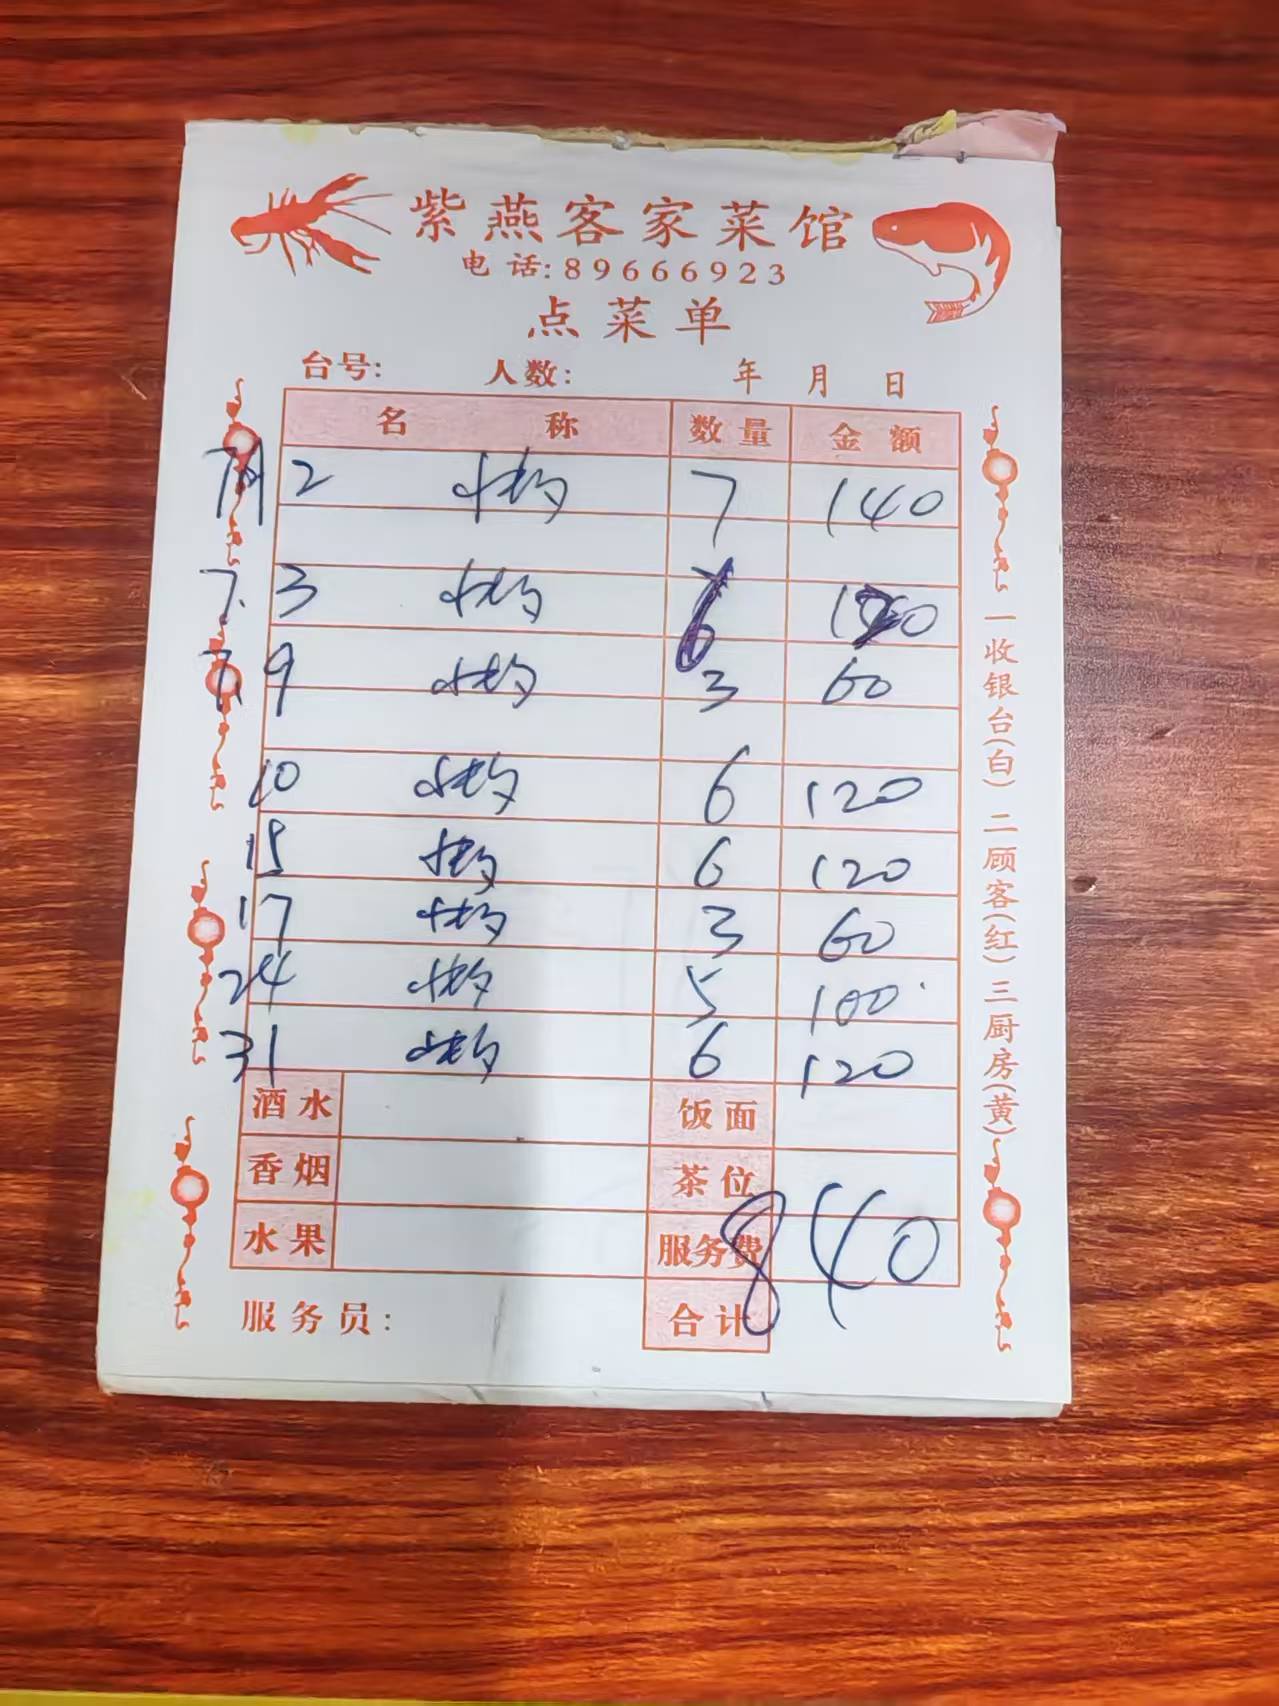 紫燕客家菜馆
电话:89666923
点菜单
台号: 人数: 年 月 日
名 称 数量 金额
7月2 7 140
7.3 6 120
7.9 3 60
10 6 120
15 6 120
17 3 60
24 5 100
31 6 120
酒水 饭面
香烟 茶位
水果 服务费
840
服务员: 合计
一收银台(白) 二顾客(红) 三厨房(黄)